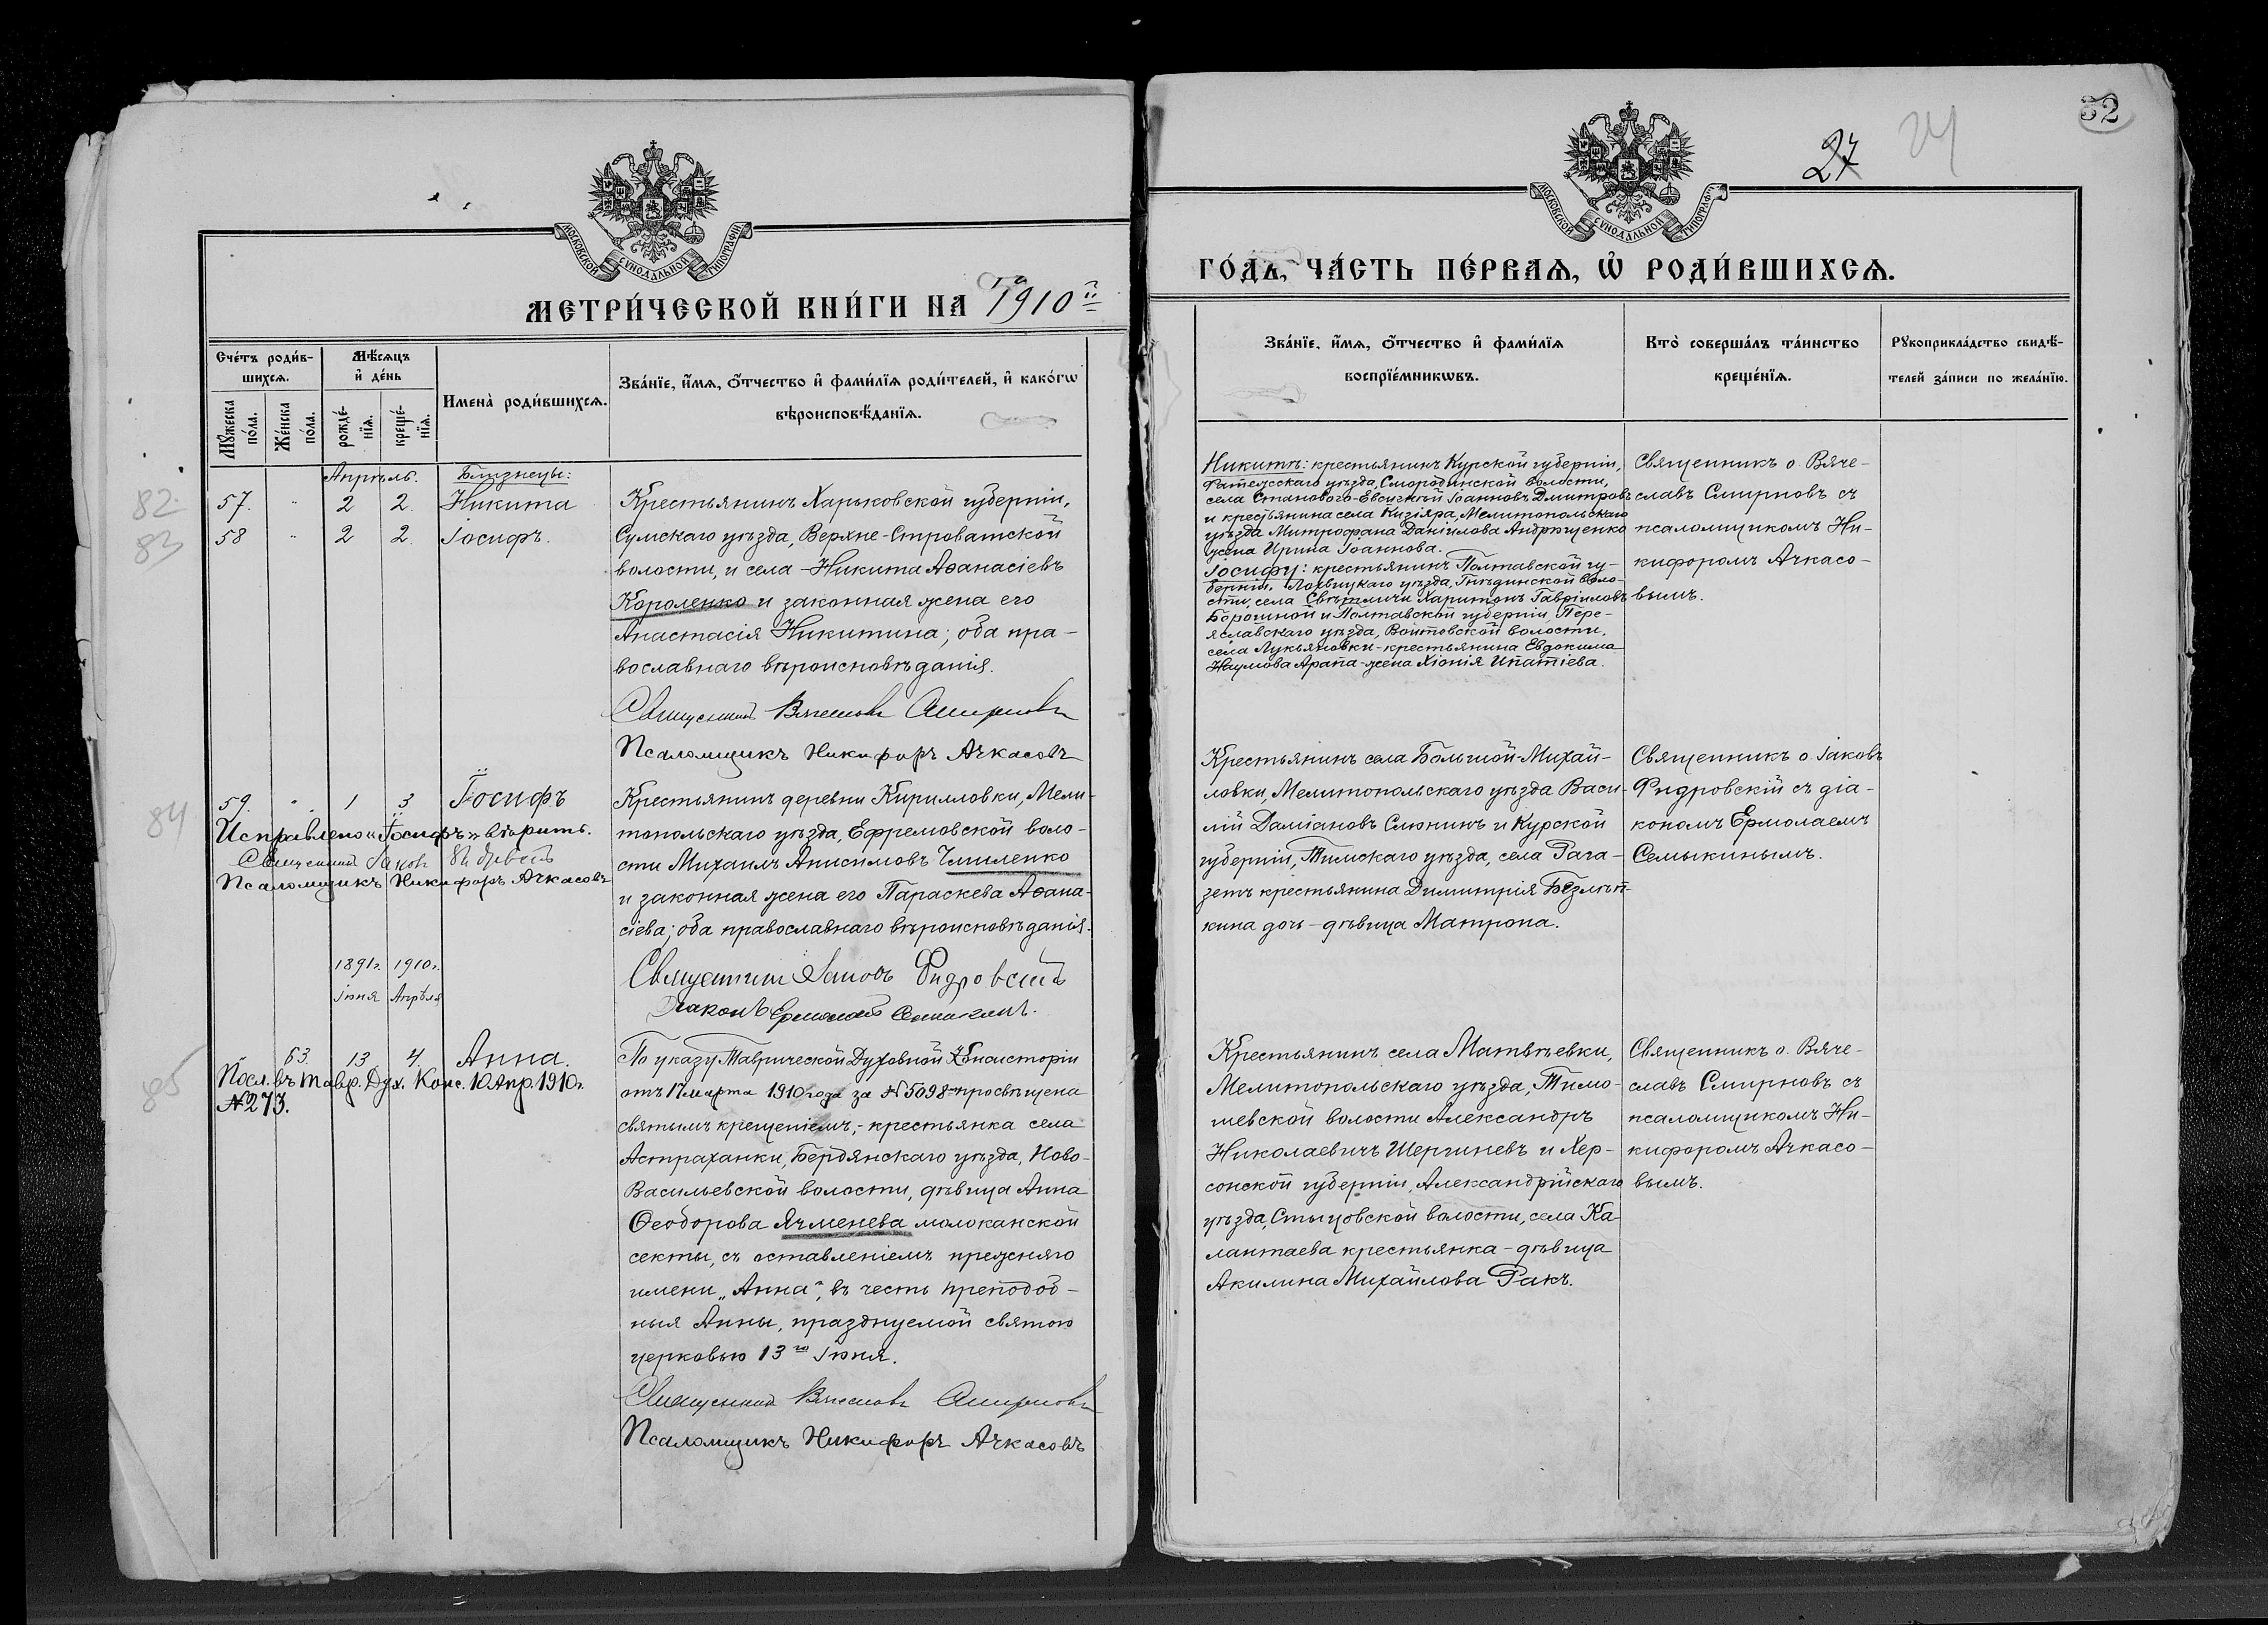 МОСКОВСКОЙ СѴНОДАЛЬНОЙ ТИПОГРАФІИ
МЕТРИ́ЧЕСКОЙ КНИ́ГИ НА 1910й
Сче́тъ роди́в-
шихсѧ.
Мѣ́сѧцъ
и҆ де́нь
Имена̀ роди́вшихсѧ.
Зва́нїе, и҆́мѧ, ѻ҆́тчество и҆ фами́лїѧ роди́телей, и҆ како́гѡ
вѣроисповѣ́данїѧ.
Мꙋ́жеска
по́ла.
Же́нска
по́ла.
рожде́-
нїѧ.
креще́-
нїѧ.
Апрѣль.
Близнецы:
82.
57. " 2 2. Никита
83
58 " 2 2. Іосифъ.
Крестьянинъ Харьковской губерніи,
Сумскаго уѣзда, Верхне-Сыроватской
волости, и села – Никита Аѳанасіевъ
Короленко и законная жена его
Анастасія Никитина; оба пра-
вославнаго вѣроисповѣданія.
Священникъ Вячеславъ Смирновъ
Псаломщикъ Никифоръ Ачкасовъ
84
59. " 1 3 Іосифъ
Исправлено „Іосифъ" вѣрить.
Священникъ Іаковъ Фидровскій
Псаломщикъ Никифоръ Ачкасовъ
Крестьянинъ деревни Кирилловки, Мели-
топольскаго уѣзда, Ефремовской воло-
сти Михаилъ Анисимовъ Чмиленко
и законная жена его Параскева Аѳана-
сіева; оба православнаго вѣроисповѣданія.
Священникъ Іаковъ Фидровскій
Діаконъ Ермолай Семыкинъ.
1891г. 1910г.
Іюня Апрѣля
85
63. 13 4. Анна.
Посл. въ Тавр. Дух. Конс. 10 Апр. 1910г.
№273.
По указу Таврической Духовной Консисторіи
отъ 17 марта 1910 года за №5098 просвѣщена
святымъ крещеніемъ, – крестьянка села
Астраханки, Бердянскаго уѣзда, Ново-
Васильевской волости, дѣвица Анна
Ѳеодорова Ячменева молоканской
секты, съ оставленіемъ прежняго
имени „Анна", въ честь преподоб-
ныя Анны, празднуемой святою
церковью 13го Іюня.
Священникъ Вячеславъ Смирновъ
Псаломщикъ Никифоръ Ачкасовъ
МОСКОВСКОЙ СѴНОДАЛЬНОЙ ТИПОГРАФІИ
27
24
32
ГО́ДЪ, ЧА́СТЬ ПЕ́РВАѦ, Ѡ҆ РОДИ́ВШИХСѦ.
Зва́нїе, и҆́мѧ, ѻ҆́тчество и҆ фами́лїѧ
воспрїе́мникѡвъ.
Кто̀ соверша́лъ та́инство
креще́нїѧ.
Рꙋкоприкла́дство свидѣ́-
телей за́писи по жела́нїю.
Никитѣ: крестьянинъ Курской губерніи,
Фатежскаго уѣзда, Смородинской волости,
села Становаго – Евсигній Іоанновъ Дмитровъ
и крестьянина села Кизіяра, Мелитопольскаго
уѣзда Митрофана Даніилова Андрющенко
жена Ирина Іоаннова.
Іосифу: крестьянинъ Полтавской гу-
берніи, Лохвицкаго уѣзда, Гнѣдинской воло-
сти, села Свѣтличи Харитонъ Гавріиловъ
Борошной и Полтавской губерніи, Пере-
яславскаго уѣзда, Войтовской волости,
села Лукьяновки – крестьянина Евдокима
Наумова Арапа – жена Хіонія Ипатіева.
Священникъ о. Вяче-
славъ Смирновъ съ
псаломщикомъ Ни-
кифоромъ Ачкасо-
вымъ.
Крестьянинъ села Большой-Михай-
ловки, Мелитопольскаго уѣзда Васи-
лій Даміановъ Слюнинъ и Курской
губерніи, Тимскаго уѣзда, села Рага-
зетъ крестьянина Димитрія Безлѣп-
кина дочь – дѣвица Матрона.
Священникъ о. Іаковъ
Фидровскій съ діа-
кономъ Ермолаемъ
Семыкинымъ.
Крестьянинъ села Матвѣевки,
Мелитопольскаго уѣзда, Тимо-
шевской волости Александръ
Николаевичъ Шергиневъ и Хер-
сонской губерніи, Александрійскаго
уѣзда, Стецовской волости, села Ка-
лантаева крестьянка – дѣвица
Акилина Михайлова Ракъ.
Священникъ о. Вяче-
славъ Смирновъ съ
псаломщикомъ Ни-
кифоромъ Ачкасо-
вымъ.